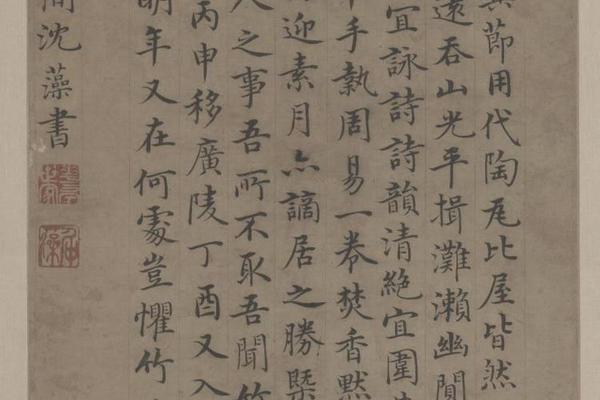 節用代陶瓦比屋皆然
遠吞山光平揖灘瀨幽闃
宜詠詩詩韻清絕宜圍
手執周易一卷焚香默
迎素月亦謫居之勝槩
之事吾所不取吾聞竹
丙申移廣陵丁酉又入
明年又在何處豈懼竹
沈藻書